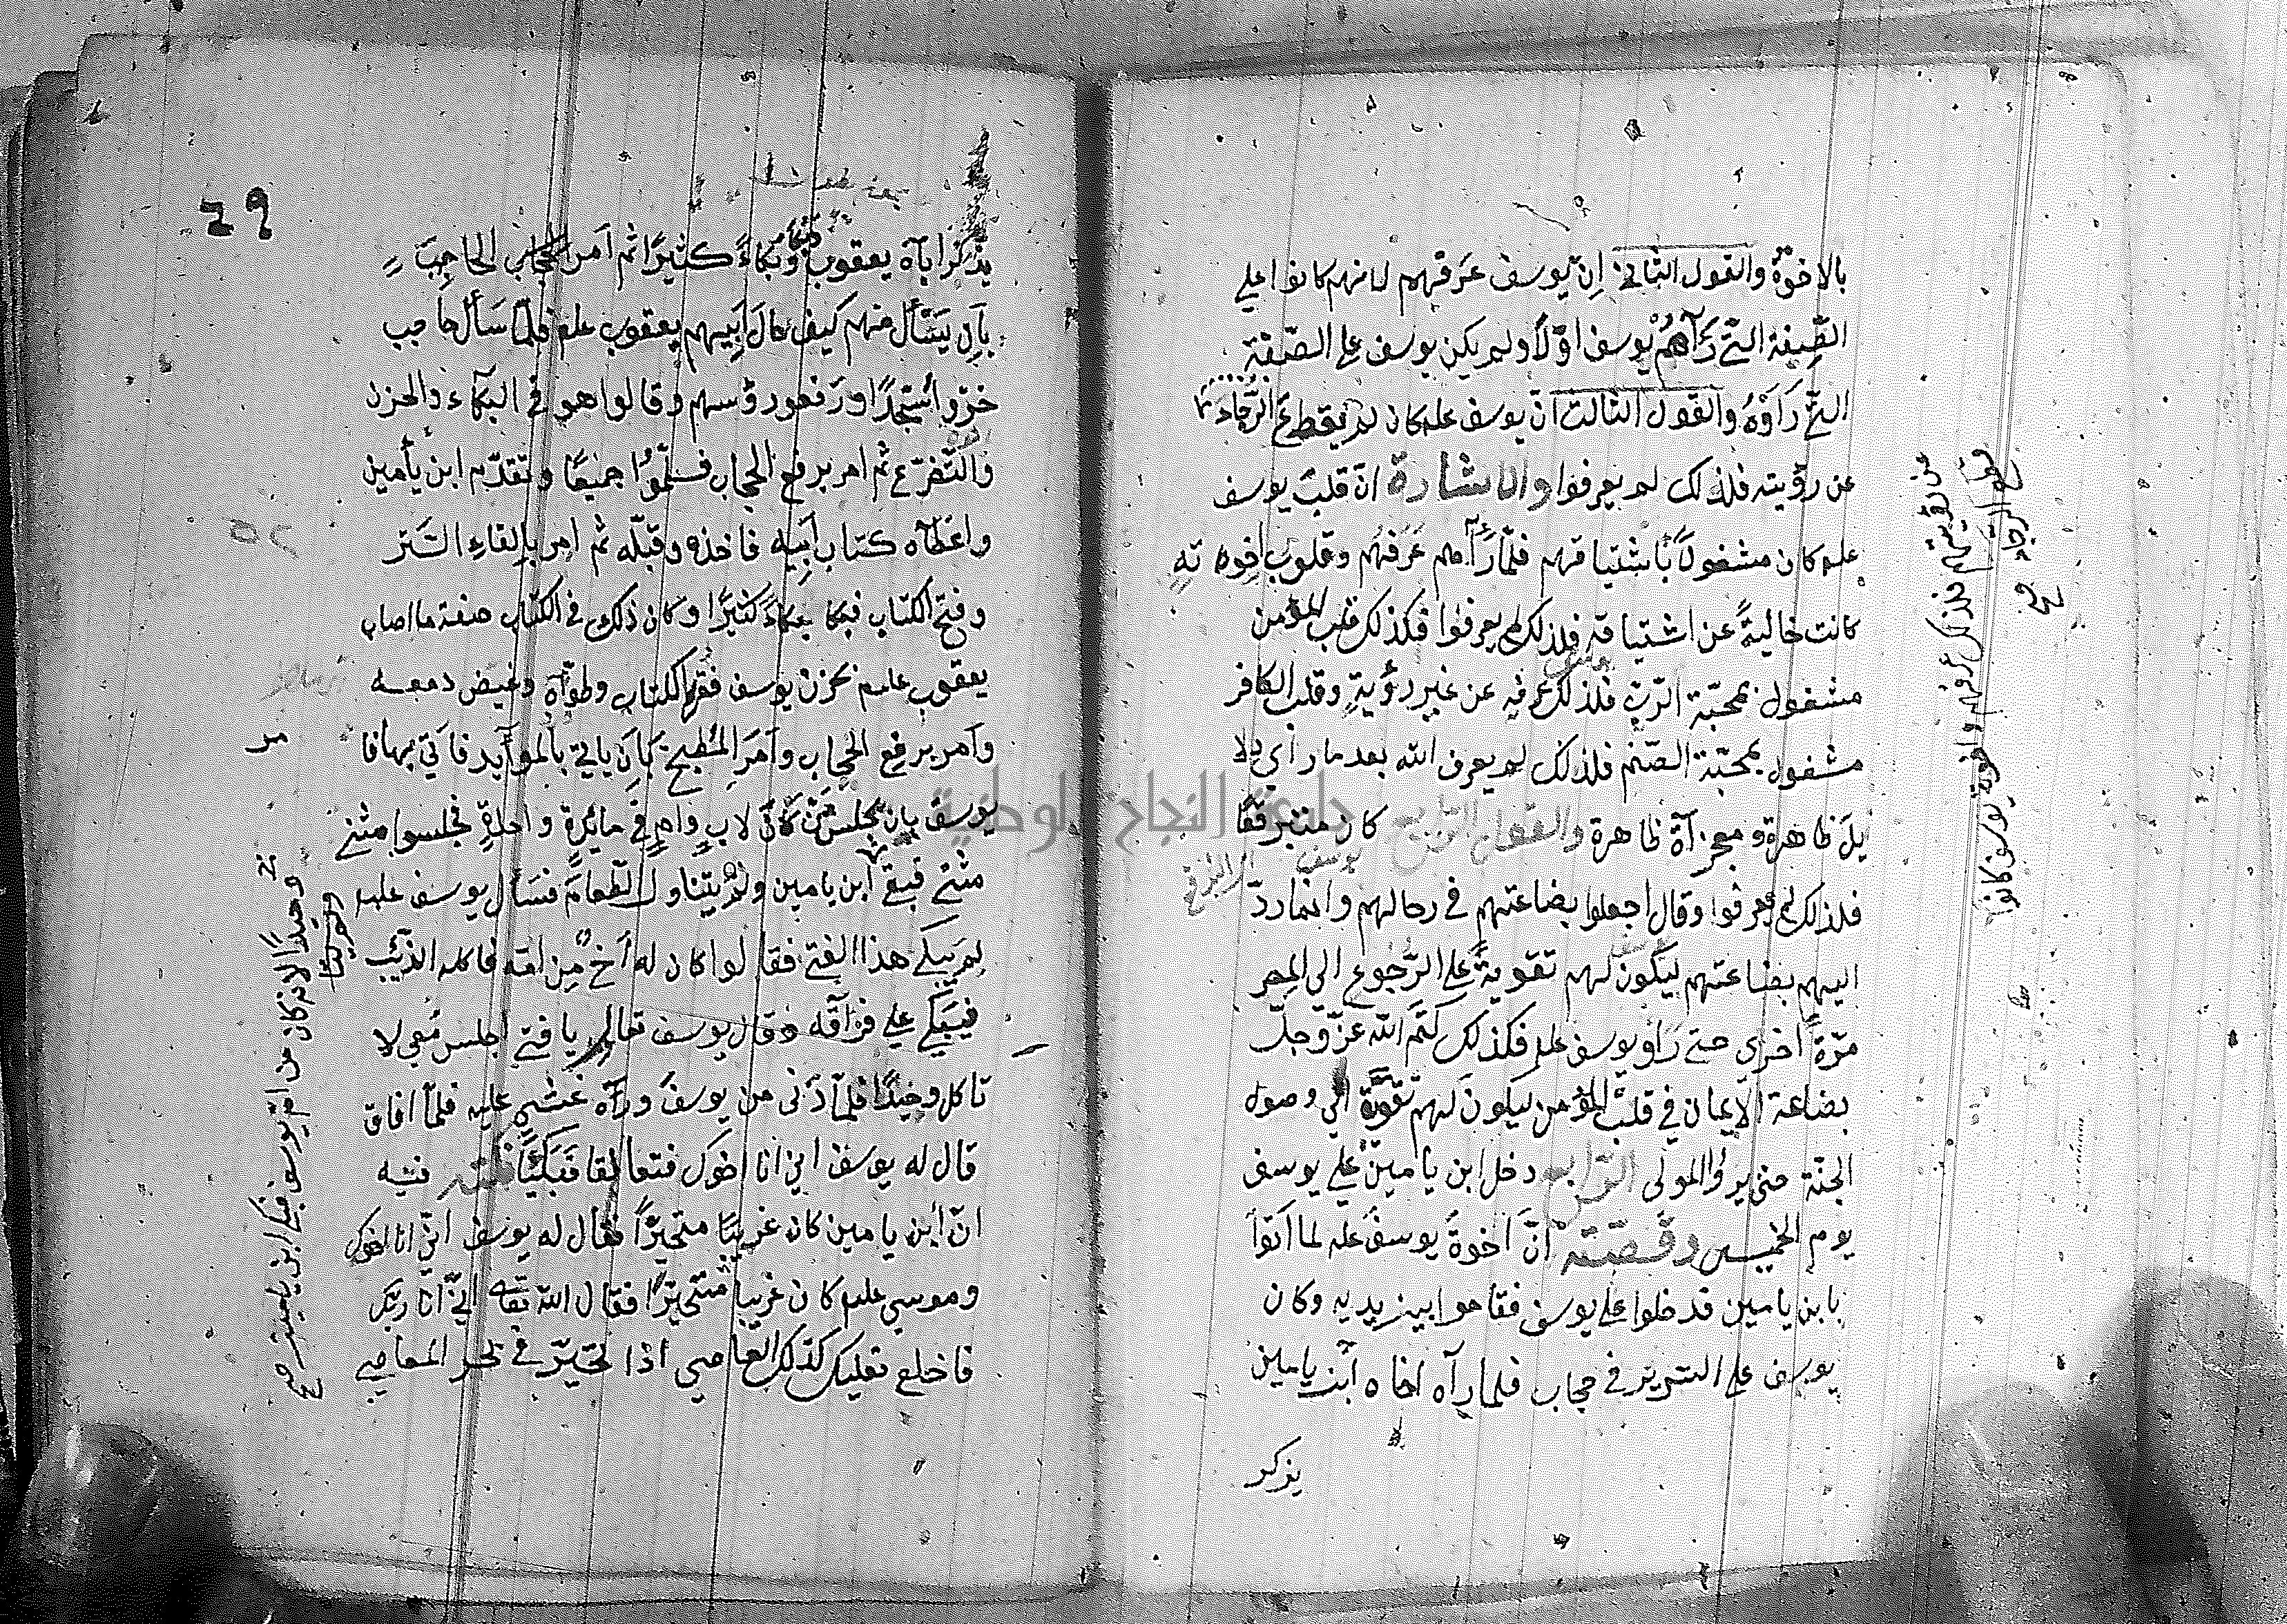 بالاخوة والقول الثاني اِنّ يوسف عرفهم لانهم كانوا علي
الصّيفة التّي رَآهُمْ يوسف اوّلاً ولم يكن يوسف علي الصّفة
التّي رَاَوْهُ والقول الثالث انّ يوسف علم كان لم يقطع الرّجاء
عن رؤيته فلذلك لم يعرفوا والاشارة انّ قلب يوسف
علم كان مشغولاً بأشتياقهم فلمّا رَآهم عَرَفهُم وقلوب اخوته
كانت خاليةً عن اشتياقه فلذلك لم يعرفوا فكذلك قلب المؤمن
مشغول بمحبّة الرّبّ فلذلك عرفه عن غير رؤيةٍ وقلب الكافر
مشغول بمحبّة الصّنم فلذلك لم يعرف الله بعد ما رأى دلا
يل ظاهرة ومعجزآة ظاهرة والقول الرّابع كان متبرقعًا
فلذلك لم يعرفوا وقال اجعلوا بضاعتهم في رحالهم وانما ردّ
اليهم بضاعتهم ليكون لهم تقويةً علي الرّجوع الي المصر
مرّةً اخرى حتي رَاَو يوسف علم فكذلك كتم الله عزّ وجلّ
بضاعة الايمان في قلب المؤمن ليكون لهم تقوية الي وصول
الجنّة حتى يروُا المولى الرّابع دخل ابن يامين علي يوسف
يوم الخميس وقصّته انّ اخوة يوسف علم لما اَتَوْا
بابن يامين قد خلوا علي يوسف فقاموا بين يديه وكان
يوسف علي السّرير في حجاب فلما رآه اخاه ابن يامين
يذكر
قطع الرجاء
عن رؤيتهم فلذلك عرفهم واخوة يوسف كانوا
صح
٤٩
يذكر اباه يعقوب وبكاءً كثيرًا ثم اَمر الحاجبَ
بأن يَسْأل منهم كيف حالَ اَبيهم يعقوب علم فلمّا سَأل حاجب
خرّو أسجّدًا ورفعو رؤسهم وقالوا هو في البكآء والحزن
والتّضرّع ثم امر برفع الحجاب فسلّموُا جميعًا وتقدّم ابن يأمين
واعطآه كتاب اَبيه فاخذه وقبّله ثم امر بالقاءِ السَتر
وفتح الكتاب فبكا بكاءً كثيرًا وكان ذلك في الكتاب صفة ما اصاب
يعقوب علم بحزن يوسف فقرا الكتاب وطوّاه وغيض دمعه
وامر برفع الحجاب وأمرَ المطبخ بَاَن ياتي بالموآيد فاتي بها فا
مر
يوسف بان يجلس مَن كان لابٍ وامٍ في مائرة واحدةٍ فجلسوا مثني
مثني فبقي ابن يامين ولم يتناول الطّعامَ فسأل يوسف علم
لم يبكي هذا الفتي فقالوا كان له اَخ مِن امّه فاكله الذّئب
فيبكي علي فرآقه فقال يوسف تعال يا فتي اجلس معي لا
تاكل وحيدًا فلمّا دَنى من يوسف ورآه غشي عليه فلمّا افاق
قال له يوسف اني انا اخوك فتعانقا فبكيَا نكته فيه
انّ ابن يامين كان غريبًا متحيّرًا فقال له يوسف انّي انا اخوك
وموسي علم كان غريبا متحيّرًا فقال الله تعالى انّي انا ربّك
فاخلع نعليك كذلك العاصي اذا تحيّر في بحر المعاصي
وحيدًا لانه كان من ام يوسف فبكي ابن يامين صح
جامعة النجاح الوطنية